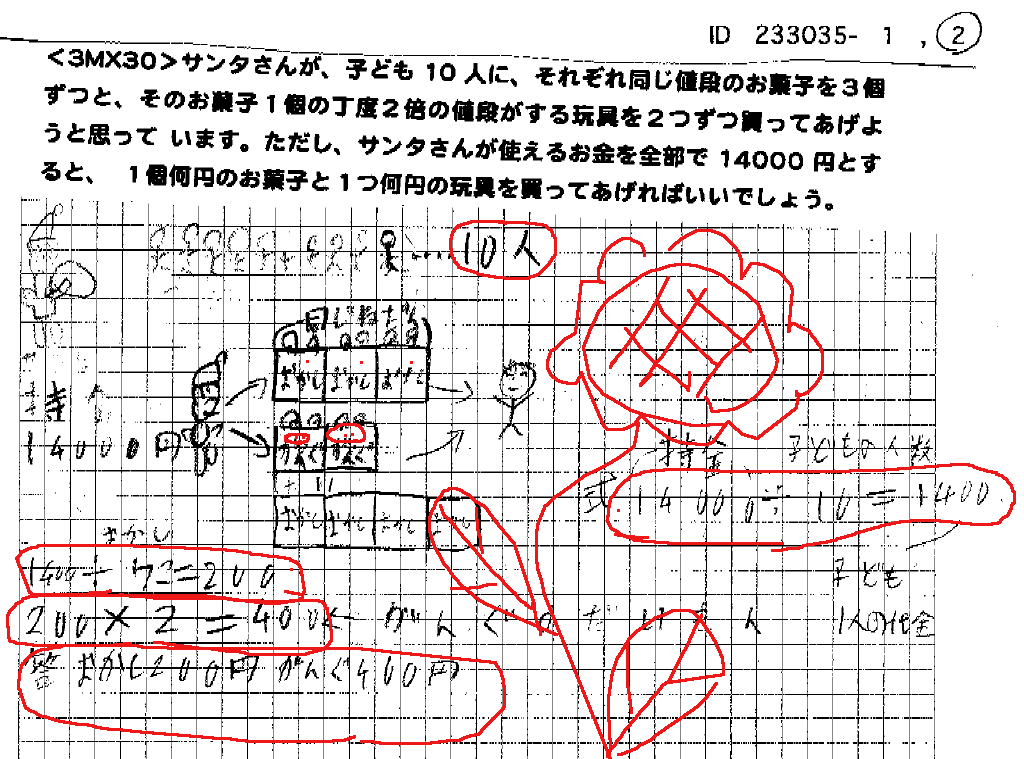 ID 233035- 1 , ②
<3MX30>サンタさんが、子ども 10 人に、それぞれ同じ値段のお菓子を3個
ずつと、そのお菓子1個の丁度2倍の値段がする玩具を2つずつ買ってあげよ
うと思って います。ただし、サンタさんが使えるお金を全部で 14000 円とす
ると、 1個何円のお菓子と1つ何円の玩具を買ってあげればいいでしょう。
....10人
同じねだん
おかし おかし おかし
持
14000円
がんぐ がんぐ
おかし おかし おかし おかし
持金 子どもの人数
式 14000÷10=1400
おかし
1400÷7こ=200
子ども
1人の代金
200×2=400← がんぐのだいきん
答 おかし200円 がんぐ400円